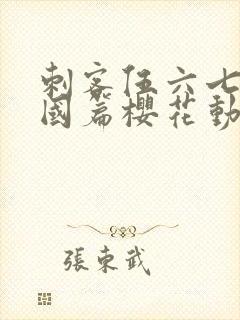 刺客伍六七
國篇櫻花動
張東武